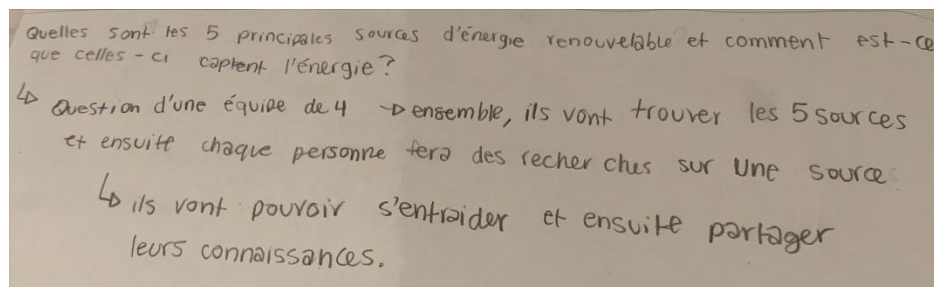 Quelles sont les 5 principales sources d'énergie renouvelable et comment est-ce
que celles-ci captent l'énergie?
↳ Question d'une équipe de 4 → ensemble, ils vont trouver les 5 sources
et ensuite chaque personne fera des recherches sur une source
↳ ils vont pouvoir s'entraider et ensuite partager
leurs connaissances.